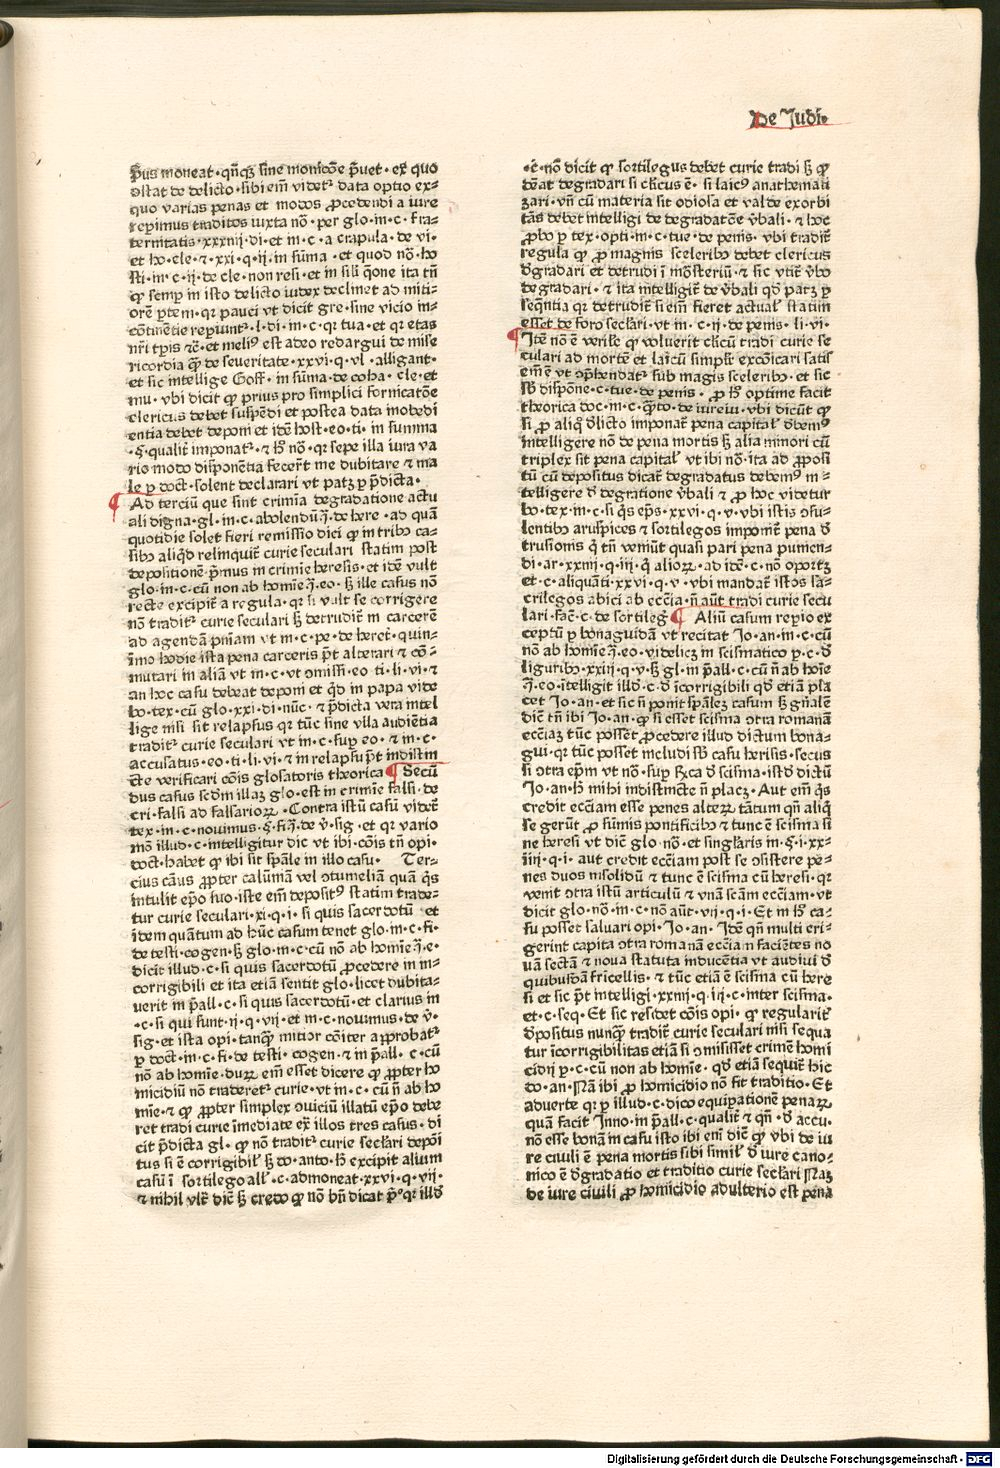 De Judi.
p̄us moneat · qn̄qꝫ sine monicōe p̄uet · ex quo
ꝯstat de delicto · sibi em̄ videtᷣ data optio ex⸗
quo varias penas et modos ꝓcedendi a iure
rep̄imus traditos iuxta nō · per glo · in · c · fra⸗
ternitatis · xxxiiij · di · et in · c · a crapula · de vi ·
et ho · cle · ⁊ · xxi · q · ij · in sūma · et quod nō · ho
sti · in · c · ij · de cle · non resi · et in sili q̄one ita tn̄
ꝙ semꝑ in isto delicto iudex declinet ad miti⸗
orē ꝑtem · qꝛ pauci vt dicit gre · sine vicio in⸗
cōtinētie reꝑiuntᷣ · l · di · in · c · qꝛ tua · et qꝛ etas
nr̄i tꝑis ⁊c̄ · et meliꝰ est a deo redargui de mise
ricordia qꝫ de seueritate · xxvi · q · vl · alligant ·
et sic intellige Goff · in sūma · de coha · cle · et
mu · vbi dicit ꝙ prius pro simplici fornicatōe
clericus debet susp̄edi et postea data inobedi
entia debet deponi et idē host · eo · ti · in summa
· § · qualit̄ imponatᷣ · ⁊ h̄ nō · qꝛ sepe illa iura va
rio modo disponētia fecer̄t me dubitare ⁊ ma
le ꝑ doct · solent declarari vt patꝫ ꝑ p̄dicta ·
¶ Ad terciū que sint crimīa degradatione actu
ali digna · gl · in · c · abolendū · ꝭ · de here · ad quā
quotidie solet fieri remissio dici ꝙ in tribꝰ ca⸗
sibꝰ aliq̄d relinquit̄ curie seculari statim post
depositionē · p̄mus in crimie heresis · et idē vult
glo · in · c · cū non ab homīe · ꝭ · eo · sꝫ ille casus nō
recte excipit̄ a regula · qꝛ si vult se corrigere
nō traditᷣ curie seculari sꝫ detrudit̄ in carcerē
ad agendā pn̄iam vt in · c · pe · de heret̄ · quin⸗
īmo hodie ista pena carceris p̄t alterari ⁊ cō⸗
mutari in aliā vt in · c · vt ꝯmissi · eo · ti · li · vi · ⁊
an hoc casu debeat deponi et q̄d in papa vide
bo · tex · cū glo · xxi · di · nūc · ⁊ p̄dicta vera intel
lige nisi sit relapsus qꝛ tūc sine vlla audiētia
traditᷣ curie seculari vt in · c · suꝑ eo · ⁊ in · c ·
accusatus · eo · ti · li · vi · ⁊ in relapsu p̄t indistin
cte verificari cōis glosatoris theorica ¶ Secū
dus casus scd̄m illaꝫ glo · est in crimie falsi · de
cri · falsi ad falsarioꝝ · Contra istū casū videt̄
tex · in · c · nouimus · § · fi · ꝭ · de v̄ · sig · et qꝛ vario
mō illud · c · intelligitur dic vt ibi · cōis tn̄ opi ·
doct · habet ꝙ ibi sit sp̄ale in illo casu · Ter⸗
cius cāus ꝓpter calūniā vel ꝯtumeliā quā q̄s
intulit ep̄o suo · iste em̄ depositꝰ statim trade⸗
tur curie seculari · xi · q · i · si quis sacerdotū et
idem quātum ad hūc casum tenet glo · in · c · fi ·
de testi · cogen · sꝫ glo · in · c · cū nō ab homīe · ꝭ · e ·
dicit illud · c · si quis sacerdotū ꝓcedere in in⸗
corrigibili et ita etiā sentit glo · licet dubita⸗
uerit in p̄all · c · si quis sacerdotū · et clarius in
· c · si qui sunt · ij · q · vij · et in · c · nouimus · de v̄ ·
sig · et ista opi · tanqꝫ mitior cōiter approbatᷣ
ꝑ doct · in · c · fi · de testi · cogen · ⁊ in p̄all · c · cū
nō ab homīe · duꝝ em̄ esset dicere ꝙ ꝓpter ho
micidiū nō traderetᷣ curie · vt in · c · cū n̄ ab ho
mīe · ⁊ ꝙ ꝓpter simplex ꝯuiciū illatū ep̄o debe
ret tradi curie īmediate ex illos tres casus · di
cit p̄dicta gl · ꝙ nō traditᷣ curie sec̄lari depōi
tus si ē corrigibil̄ sꝫ do · anto · h̄ excipit alium
casū ī sortilego all̄ · c · admoneat · xxvi · q · vij ·
⁊ nihil vlt̄ · diē sꝫ credo ꝙ nō bn̄ dicat p̄ᵒ qꝛ ill̄d
· c̄ · nō dicit ꝙ sortilegus debet curie tradi sꝫ ꝙ
dēat degradari si cl̄icus ē · si laicꝰ anathemati
zari · vn̄ cū materia sit odiosa et valde exorbi
tās debet intelligi de degradatōe v̄bali · ⁊ hoc
ꝓbo ꝑ tex · opti · in · c · tue · de penis · vbi tradit̄
regula ꝙ ꝓ magnis sceleribꝰ debet clericus
d̄gradari et detrudi ī mōsteriū · ⁊ sic vtit̄ v̄bo
degradari · ⁊ ita intelligit̄ de v̄bali qd̄ patꝫ ꝑ
seq̄ntia qꝛ detrudit̄ si em̄ fieret actual̄ statim
esset de foro sec̄lari · vt in · c · ij · de penis · li · vi ·
¶ Itē nō ē verisil̄e ꝙ voluerit cl̄icū tradi curie se
culari ad mortē et laicū simpl̄r excōicari satis
em̄ ē vt ꝯp̄hendatᷣ sub magis sceleribꝰ · et sic
sb̄ dispōne · c · tue · de penis · ꝓ h̄ optime facit
theorica doc · in · c · qꝫto · de iureiu · vbi dicūt ꝙ
si ꝓ aliq̄ d̄licto imponat̄ pena capital̄ d̄bemꝰ
intelligere nō de pena mortis sꝫ alia minori cū
triplex sit pena capital̄ vt ibi nō · ita ad ꝓposi
tū cū depositus dicat̄ degradatus debemꝰ in⸗
telligere d̄ degratione v̄bali ⁊ ꝓ hoc videtur
bo · tex · in · c · si q̄s ep̄s · xxvi · q · v · vbi istis ꝯsu⸗
lentibꝰ aruspices ⁊ sortilegos imponit̄ pena d̄
trusionis q̄ tn̄ veniūt quasi pari pena punien⸗
di · ar · xxiiij · q · iij · q̄ alioꝝ · ad idē · c · nō oportꝫ
et · c · aliquāti · xxvi · q · v · vbi mandat̄ istos sa⸗
crilegos abici ab ecc̄ia · n̄ aūt tradi curie secu
lari · fac̄ · c · de sortileḡ ¶ Aliū casum reꝑio ex
ceptū ꝑ bonaguidā vt recitat Jo · an · in · c · cū
nō ab homīe · ꝭ · eo · videlicꝫ in scismatico ꝑ · c · d̄
liguribꝰ · xxiij · q · v · sꝫ gl · in p̄all · c · cū n̄ ab hoīe
ꝭ · eo · ītelligit ill̄d · c · d̄ īcorrigibili qd̄ etiā pla
cet Jo · an · et sic n̄ ponit sp̄alēꝫ casum sꝫ gn̄alē
diē tn̄ ibi Jo · an · ꝙ si esset scisma ꝯtra romanā
ecc̄iaꝫ tūc posset ꝓcedere illud dictum bona⸗
gui · qꝛ tūc posset includi sb̄ casu herisis · secus
si ꝯtra ep̄m vt nō · suꝑ Rica d̄ scisma · istd̄ dictū
Jo · an · h̄ mihi indistincte n̄ placꝫ · Aut em̄ q̄s
credit ecc̄iam esse penes alteꝝ tātum qn̄ aliq̄
se gerūt ꝓ sūmis pontificibꝰ ⁊ tunc ē scisma si
ne heresi vt diē glo · nō · et singl̄aris in · § · i · xx⸗
iiij · q · i · aut credit ecc̄iam post se ꝯsistere pe⸗
nes duos insolidū ⁊ tunc ē scisma cū heresi · qꝛ
venit ꝯtra istū articulū ⁊ vnā scām ecc̄iam · vt
dicit glo · nō · in · c · nō aūt · vij · q · i · Et in h̄ ca⸗
su posset saluari opi · Jo · an · Idē qn̄ multi eri⸗
gerint capita ꝯtra romanā ecc̄iam faciētes no
uā sectā ⁊ noua statuta inducētia vt audiui d̄
quibusdā fricellis · ⁊ tūc etiā ē scisma cū here
si et sic p̄t intelligi · xxiiij · q · iij · c · inter scisma ·
et · c · seq · Et sic residet cōis opi · ꝙ regularit̄
d̄positus nunqꝫ tradit̄ curie seculari nisi sequa
tur īcorrigibilitas etiā si ꝯmisisset crimē homi
cidij ꝑ · c · cū non ab homīe · qd̄ etiā sequit̄ hic
do · an · Nā ibi ꝓ homicidio nō fit traditio · Et
aduerte qꝛ ꝑ illud · c · dico equipationē penaꝝ
quā facit Inno · in p̄all · c · qualit̄ ⁊ qn̄ · d̄ accu ·
nō esse bonā in casu isto ibi eni diē ꝙ vbi de iu
re ciuili ē pena mortis sibi simil̄ d̄ iure cano⸗
nico ē d̄gradatio et traditio curie sec̄lari Naꝫ
de iure ciuili ꝓ homicidio adulterio est pena
Digitalisierung gefördert durch die Deutsche Forschungsgemeinschaft · DFG